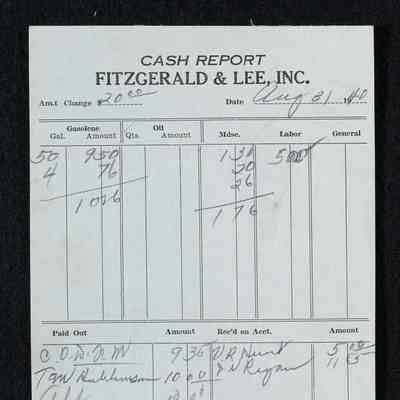 CASH REPORT
FITZGERALD & LEE, INC.
Am.t Change $ 20 00 Date Aug 31, 40
Gasolene Oil Mdse. Labor General
Gal. Amount Qts. Amount
50 9 50 1 30 5 00
4 76 20
26
10 26 1 76
Paid Out Amount Rec'd on Acct. Amount
C. O. D. 9 36 V. R. Hunt 5 00
10 00 Regan 11 65